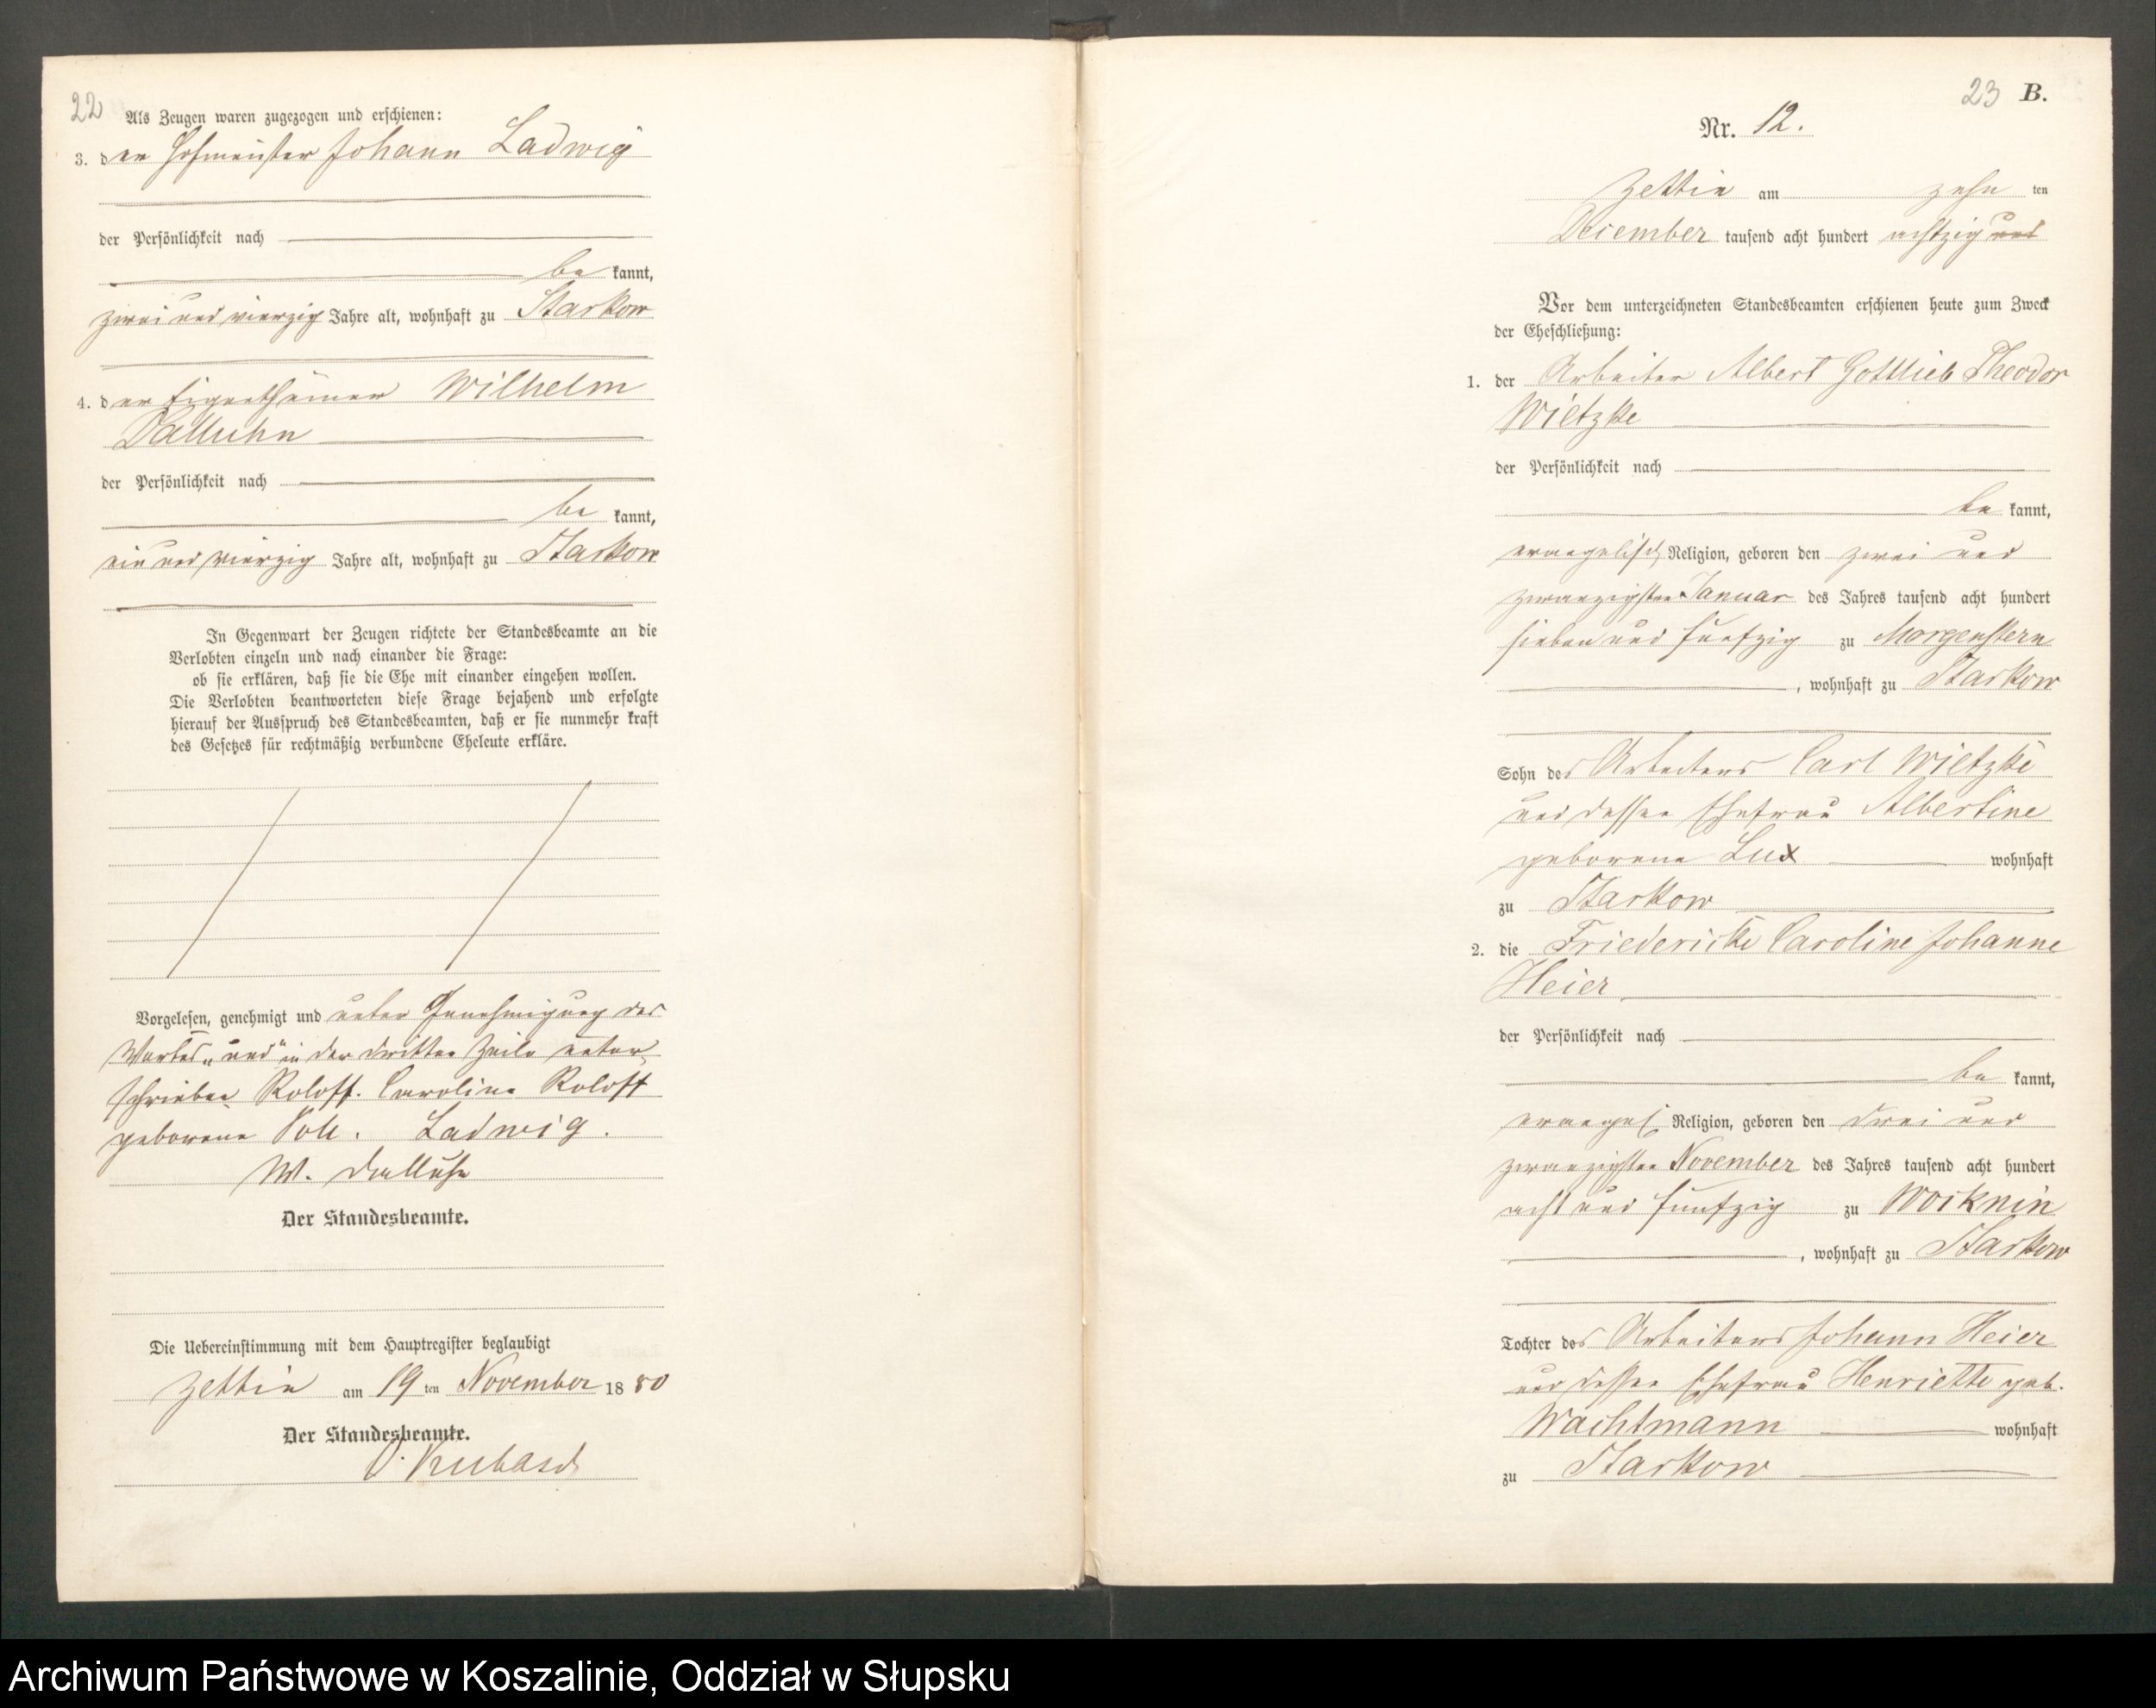 22
Als Zeugen waren zugezogen und erschienen:
3. der Hofmeister Johann Ladwig
der Persönlichkeit nach
be kannt,
zwei und vierzig Jahre alt, wohnhaft zu Starkow
4. der Eigenthümer Wilhelm
Dalluhn
der Persönlichkeit nach
be kannt,
ein und vierzig Jahre alt, wohnhaft zu Starkow
In Gegenwart der Zeugen richtete der Standesbeamte an die
Verlobten einzeln und nach einander die Frage:
ob sie erklären, daß sie die Ehe mit einander eingehen wollen.
Die Verlobten beantworteten diese Frage bejahend und erfolgte
hierauf der Ausspruch des Standesbeamten, daß er sie nunmehr kraft
des Gesetzes für rechtmäßig verbundene Eheleute erkläre.
Vorgelesen, genehmigt und unter Genehmigung des
Wortes „und" in der dritten Zeile unter
schrieben Roloff. Caroline Roloff
geborene Poll. Ladwig.
W. Dalluhn
Der Standesbeamte.
Die Uebereinstimmung mit dem Hauptregister beglaubigt
Zettin am 19 ten November 18 80
Der Standesbeamte.
23 B.
Nr. 12.
Zettin am zehn ten
December tausend acht hundert achtzig und
Vor dem unterzeichneten Standesbeamten erschienen heute zum Zweck
der Eheschließung:
1. der Arbeiter Albert Gottlieb Theodor
Wietzke
der Persönlichkeit nach
be kannt,
evangelisch Religion, geboren den zwei und
zwanzigsten Januar des Jahres tausend acht hundert
sieben und funfzig zu Morgenstern
, wohnhaft zu Starkow
Sohn des Arbeiters Carl Wietzke
und dessen Ehefrau Albertine
geborene Lux wohnhaft
zu Starkow
2. die Friedericke Caroline Johanne
Heier
der Persönlichkeit nach
be kannt,
evangel. Religion, geboren den drei und
zwanzigsten November des Jahres tausend acht hundert
acht und funfzig zu Wocknin
, wohnhaft zu Starkow
Tochter des Arbeiters Johann Heier
und dessen Ehefrau Henriette geb.
Wachtmann wohnhaft
zu Starkow
Archiwum Państwowe w Koszalinie, Oddział w Słupsku